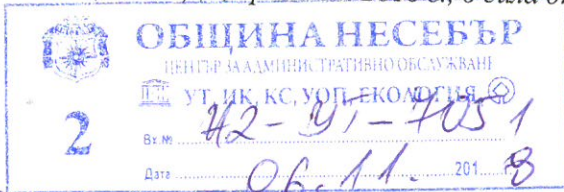 ОБЩИНА НЕСЕБЪР
ЦЕНТЪР ЗА АДМИНИСТРАТИВНО ОБСЛУЖВАНЕ
УТ, ИК, КС, УОП, ЕКОЛОГИЯ
2
Вх.№ Н2-УТ-7051
Дата 06.11. 2018